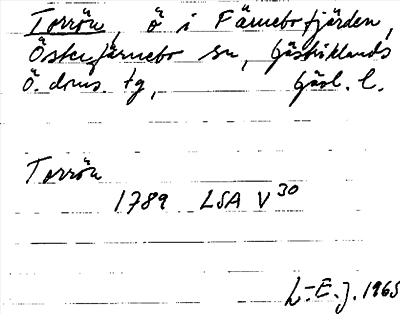 Torrön, ö i Färnebofjärden,
Österfärnebo sn, Gästriklands
Ö. doms. tg, Gävl. l.
Torrön
1789 LSA V 30
L-E. J. 1965